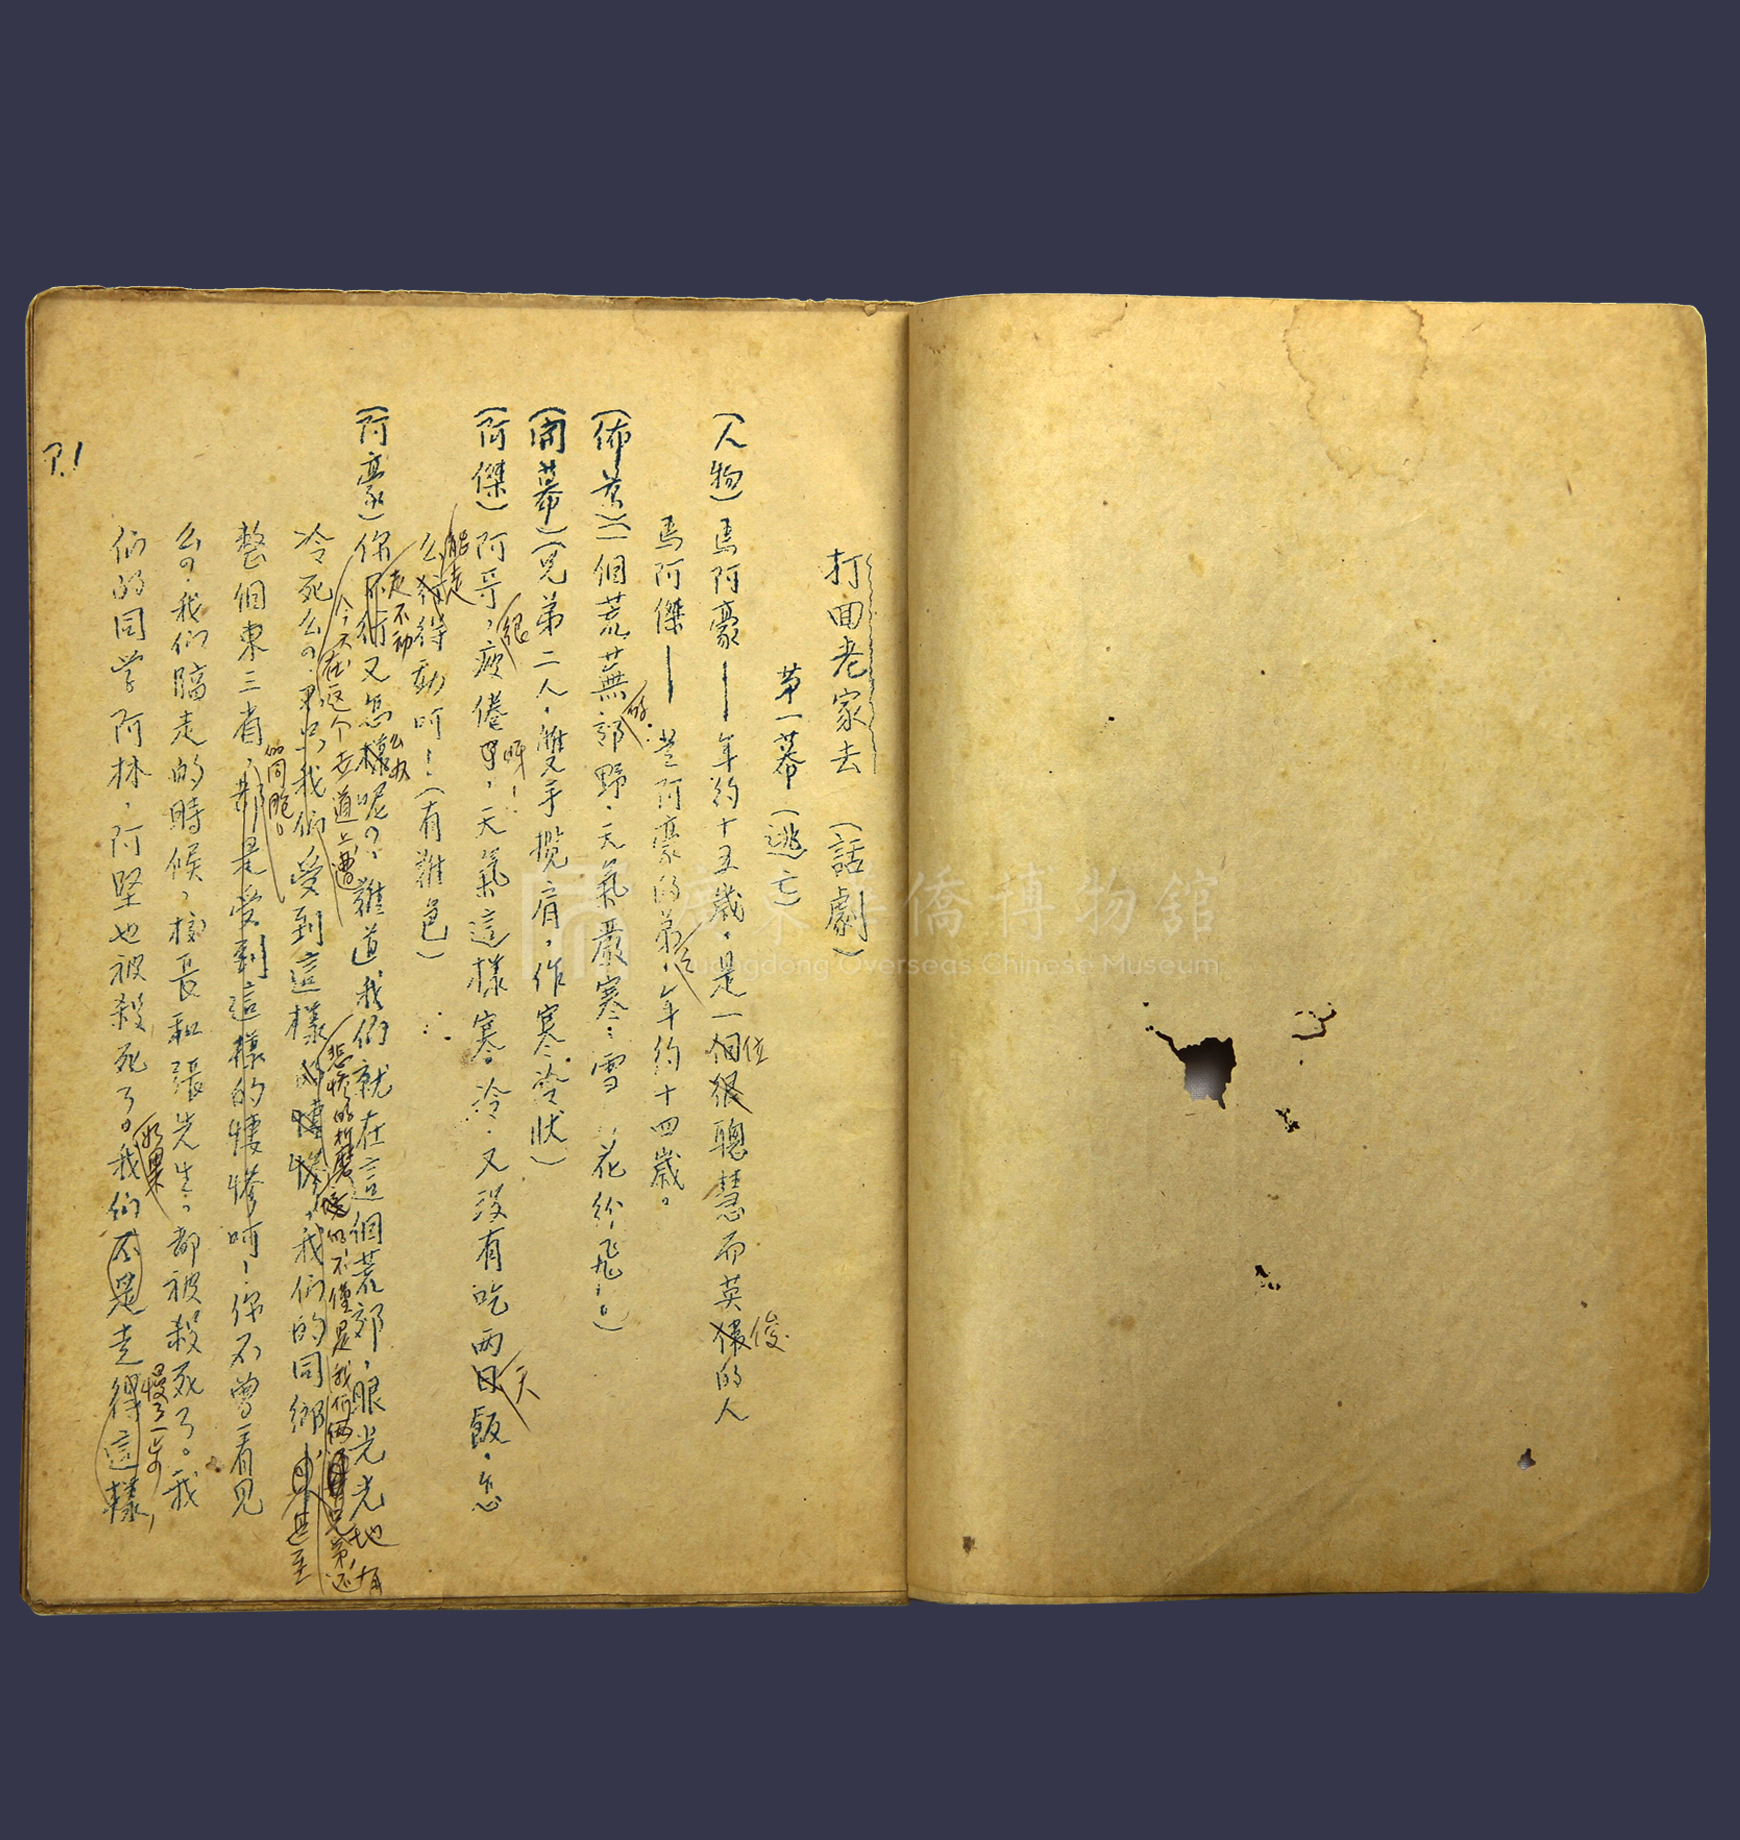 打回老家去 （話劇）
第一幕（逃亡）
（人物）馬阿豪——年約十五歲，是一個位很聰慧而英俊的人
馬阿傑——是阿豪的弟弟，年約十四歲。
（佈景）（一個荒蕪的郊野，天氣嚴寒，雪花紛飛。）
（開幕）（兄弟二人，雙手攬肩，作寒冷狀）
（阿傑）阿哥，很疲倦呀！天氣這樣寒冷，又沒有吃兩日天飯，怎
么能走得動呵！（有難色）
（阿豪）你走不動又怎樣么办呢？難道我們就在這個荒郊，眼光光地
冷死么？今天在这个世道上遭受到這樣悲慘的折磨的不僅是我们兄弟，还有我們的同鄉，甚至
整個東三省的同胞。都是受到這樣的悽慘呵！你不曾看見
么？我們臨走的時候，校長和張先生，都被殺死了。我
们的同学阿林，阿堅也被殺死了。如果我们不是走得這樣，慢了一步
P.1
廣東華僑博物館
Guangdong Overseas Chinese Museum